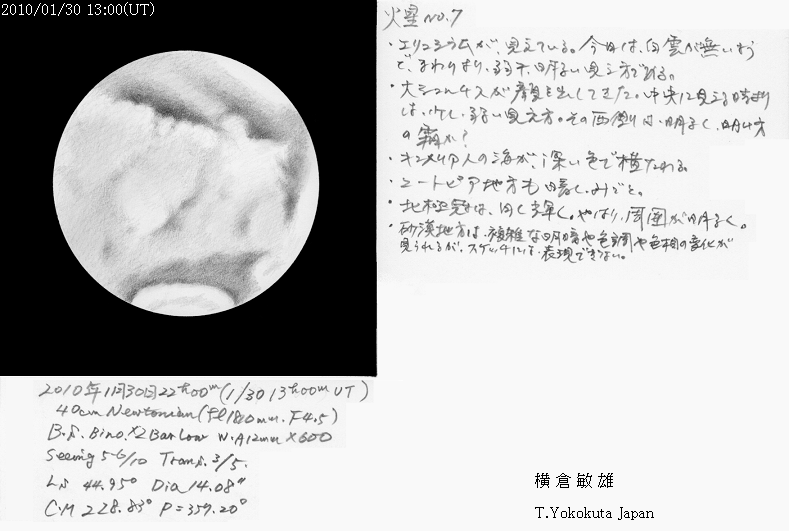 2010/01/30 13:00(UT)
火星 No.7
・エリシウムが、見えている。今日は、白雲が無いよう
で、まわりより、若干、明るい見え方である。
・大シュルチスが顔を出してきた。中央に見える時より
は、少し、弱い見え方。その西側は、明るく、明け方
の霧か?
・キンメリア人の海が、深い色で横たわる。
・ユートピア地方も暗く、みごと。
・北極冠は、白く輝く。やはり、周囲が明るく。
・砂漠地方は、複雑な明暗や色調や色相の変化が
見られるが、スケッチには、表現できない。
2010年1月30日22h00m(1/30 13h00m UT)
40cm Newtonian (fl1800mm. F4.5)
B.S. Bino. X2 Barlow W.A12mm X600
Seeing 5-6/10 Trans. 3/5.
Ls 44.95° Dia 14.08"
C.M 228.83° P=359.20°
横倉敏雄
T.Yokokuta Japan